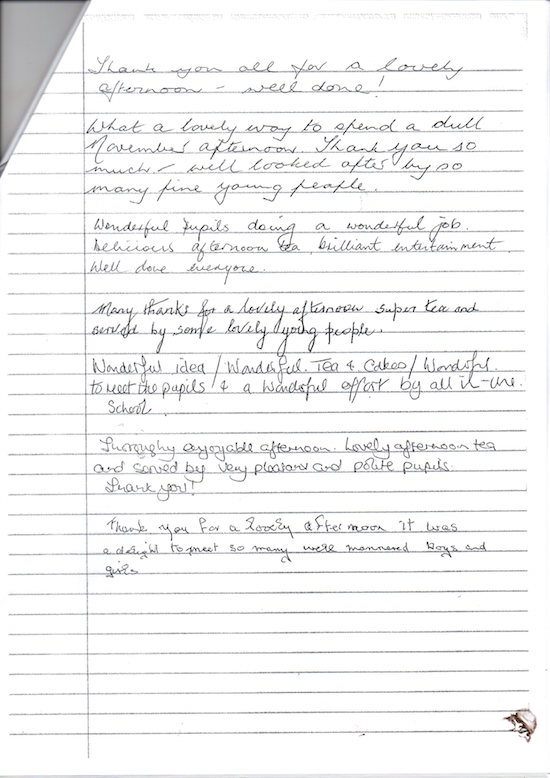 Thank you all for a lovely
afternoon - well done!
What a lovely way to spend a dull
November afternoon. Thank you so
much - well looked after by so
many fine young people.
Wonderful pupils doing a wonderful job.
Delicious afternoon tea, brilliant entertainment.
Well done everyone.
Many thanks for a lovely afternoon super tea and
served by some lovely young people.
Wonderful idea / Wonderful. Tea & Cakes / Wonderful.
to meet the pupils & a wonderful effort by all in the
School.
Thoroughy enjoyable afternoon. Lovely afternoon tea
and served by very pleasant and polite pupils.
Thank you!
Thank you for a lovely afternoon it was
a delight to meet so many well mannered boys and
girls